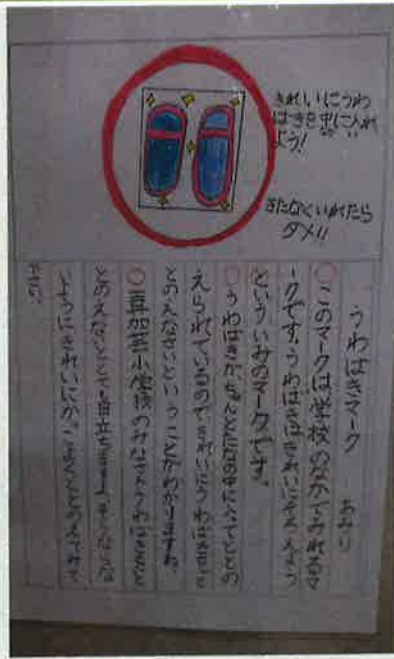 きれいにうわ
はきを中に入れ
よう!
きたなくいれたら
ダメ!!
うわはきマーク
あみり
○このマークは学校のなかでみれるマ
ークです。うわはきはきれいにそろえよう
といういみのマークです。
○うわはきが、ちゃんとたなの中に入ってととの
えられているので、きれいにうわはきをと
とのえなさいということがわかりますね。
小学校のみなさん、うわはきをと
とのえないととても目立ちます。
ようにきれいにかっこよくととのえてみて
下さい。